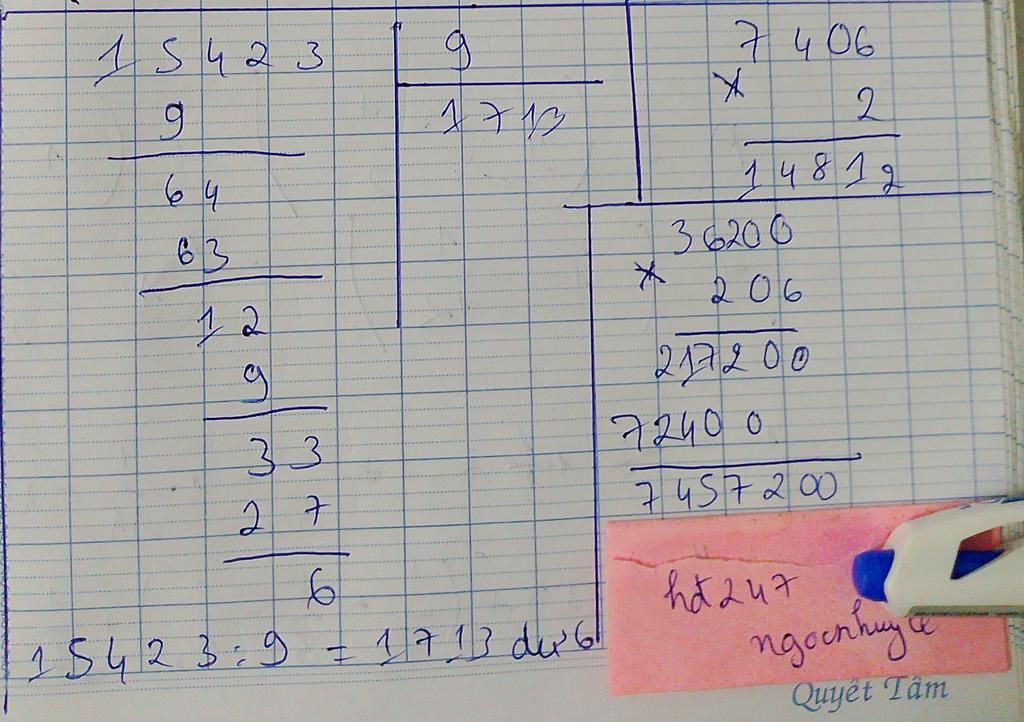 15423 9
9 1713
64
63
12
9
33
27
6
15423:9=1713 dư 6
7406
x
2
14812
36200
x
206
217200
72400
7457200
hđ247
ngocnhuyle
Quyết Tâm